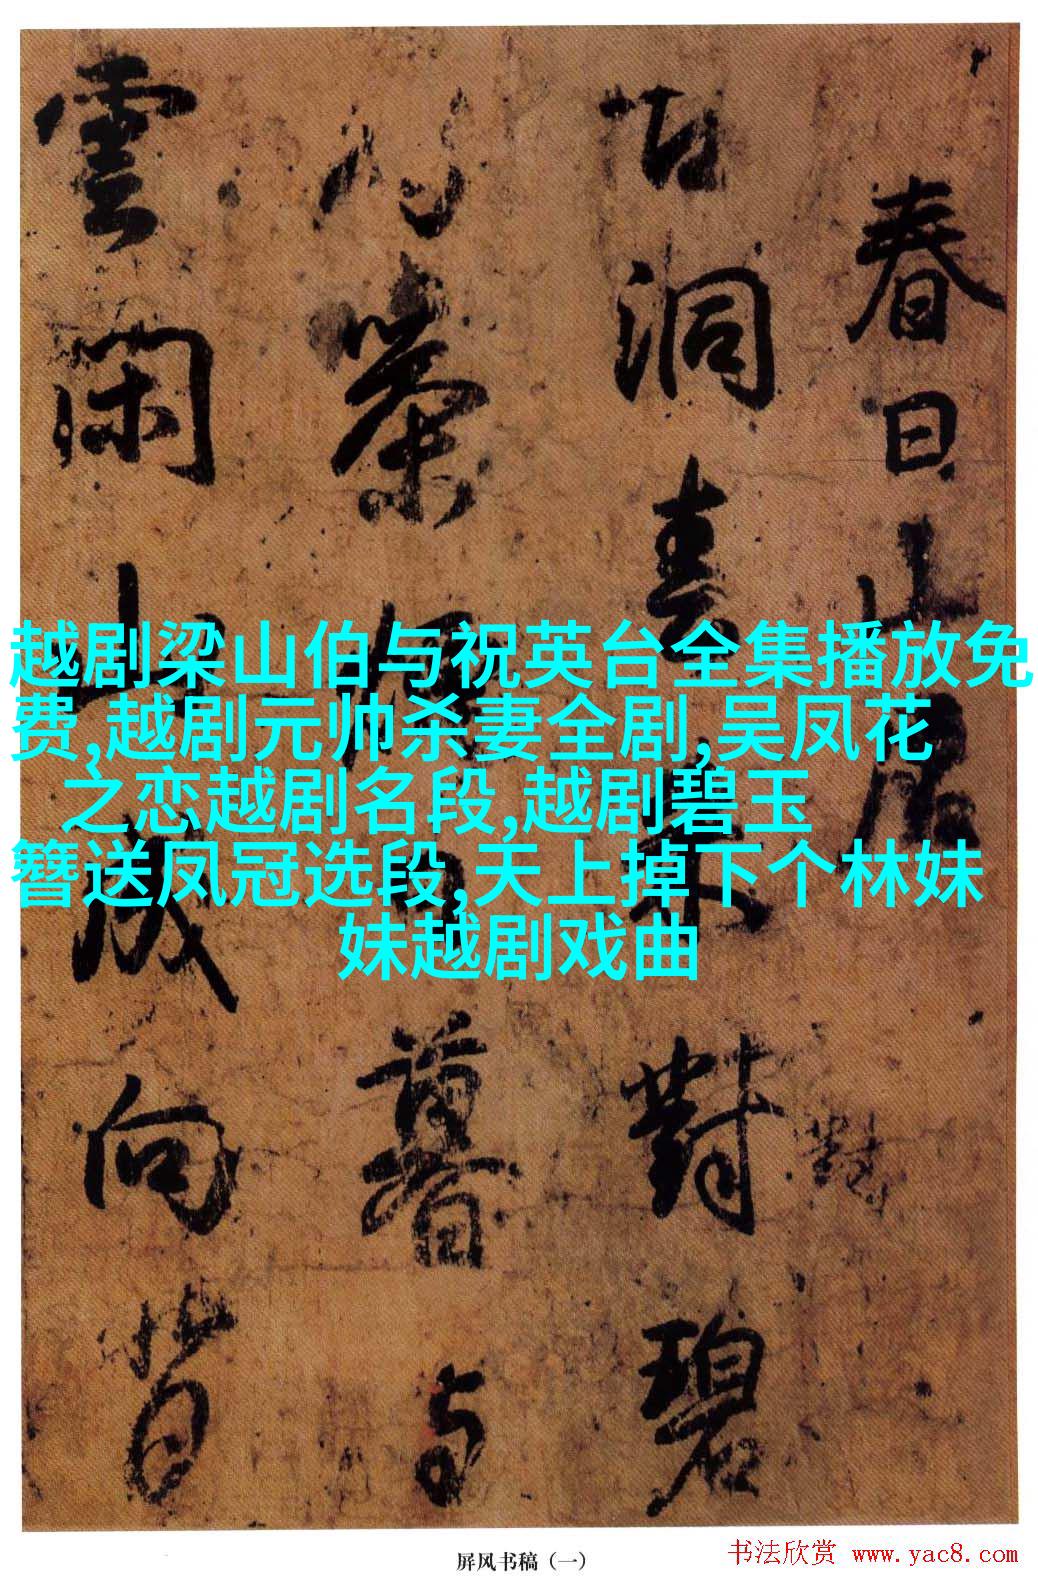 春日山居
古洞春来對碧
對
茶煙日暮与
雲閑山成向背
越剧梁山伯与祝英台全集播放免
费,越剧元帅杀妻全剧,吴凤花
之恋越剧名段,越剧碧玉
簪送凤冠选段,天上掉下个林妹
妹越剧戏曲
屏风书稿（一）
书法欣赏 www.yac8.com